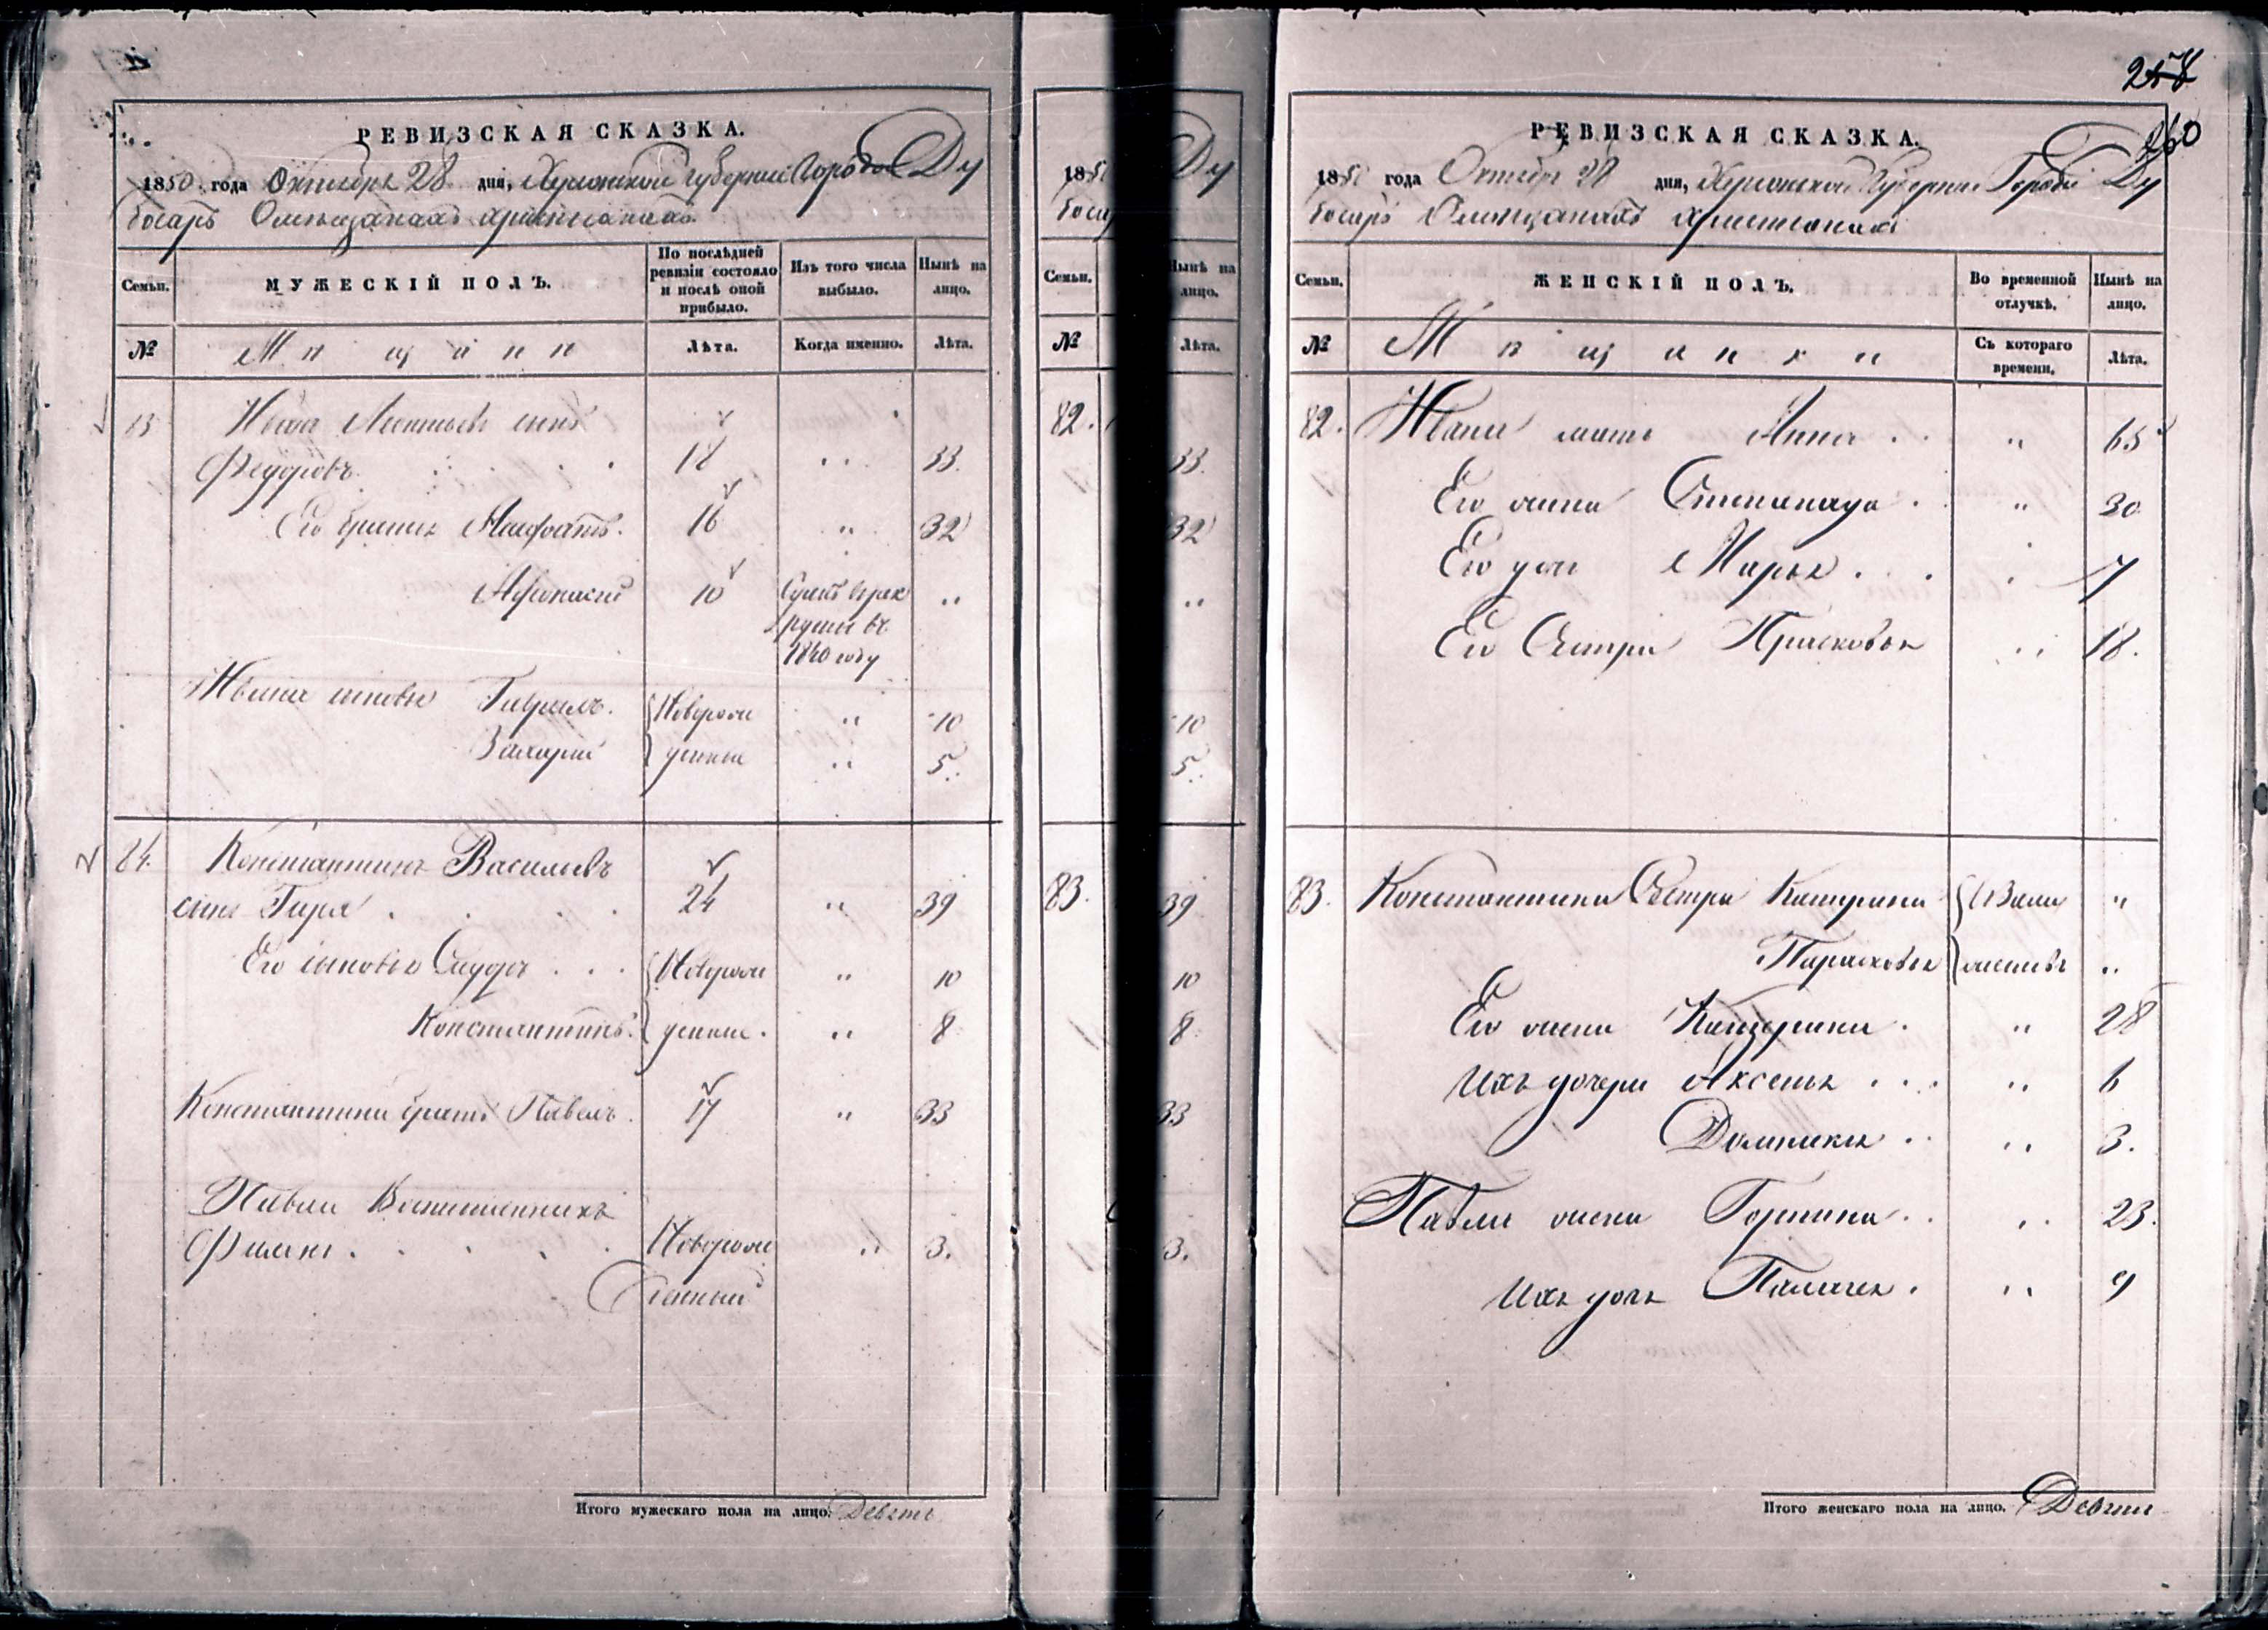 РЕВИЗСКАЯ СКАЗКА.
1850 года Октября 28 дня, Херсонской Губернии Города Ду
босаръ О мещанахъ христианахъ
Семьи.
МУЖЕСКІЙ ПОЛЪ.
По послѣдней ревизіи состояло и послѣ оной прибыло.
Изъ того числа выбыло.
Нынѣ на лицо.
№
Мѣщане
Лѣта.
Когда именно.
Лѣта.
83 Иванъ Леонтьевъ сынъ
Федоровъ 18 " 33.
Его братья 16 " 32
Афонасий 10 "
рекруты въ
1840 году
Ивана сыновья Гаврилъ. Новорож " 10
Захарий денные " 5.
84. Константинъ Васильевъ
сынъ Гира 24 " 39
Его сыновья Сидоръ Новорож " 10
Константинъ. денные. " 8
Константина братъ Павелъ. 17 " 33
Павла Воспитанникъ
Новорож " 3.
денный
Итого мужескаго пола на лицо. Девять
1850
босар
Ду
Семьи.
Нынѣ на лицо.
№
Лѣта.
82.
33.
32
"
10
5.
83.
39
10
8
33
3.
258
260
РЕВИЗСКАЯ СКАЗКА.
1850 года Октября 28 дня, Херсонской Губернии Города Ду
босаръ О мещанахъ христианахъ
Семьи.
ЖЕНСКІЙ ПОЛЪ.
Во временной отлучкѣ.
Нынѣ на лицо.
№
Мѣщанки
Съ котораго времени.
Лѣта.
82. Ивана мать Анна " 65
Его жена Степанида " 30
Его дочь Марья 7
Его Сестра Прасковья " 18.
83. Константина Сестра Катерина Взаму "
Парасковья жествѣ "
Его жена Катерина " 28
Ихъ дочери Аксенья " 6
Домникия " 3.
Павла жена Горпина " 23.
Ихъ дочь Палагея " 9
Итого женскаго пола на лицо. Девять